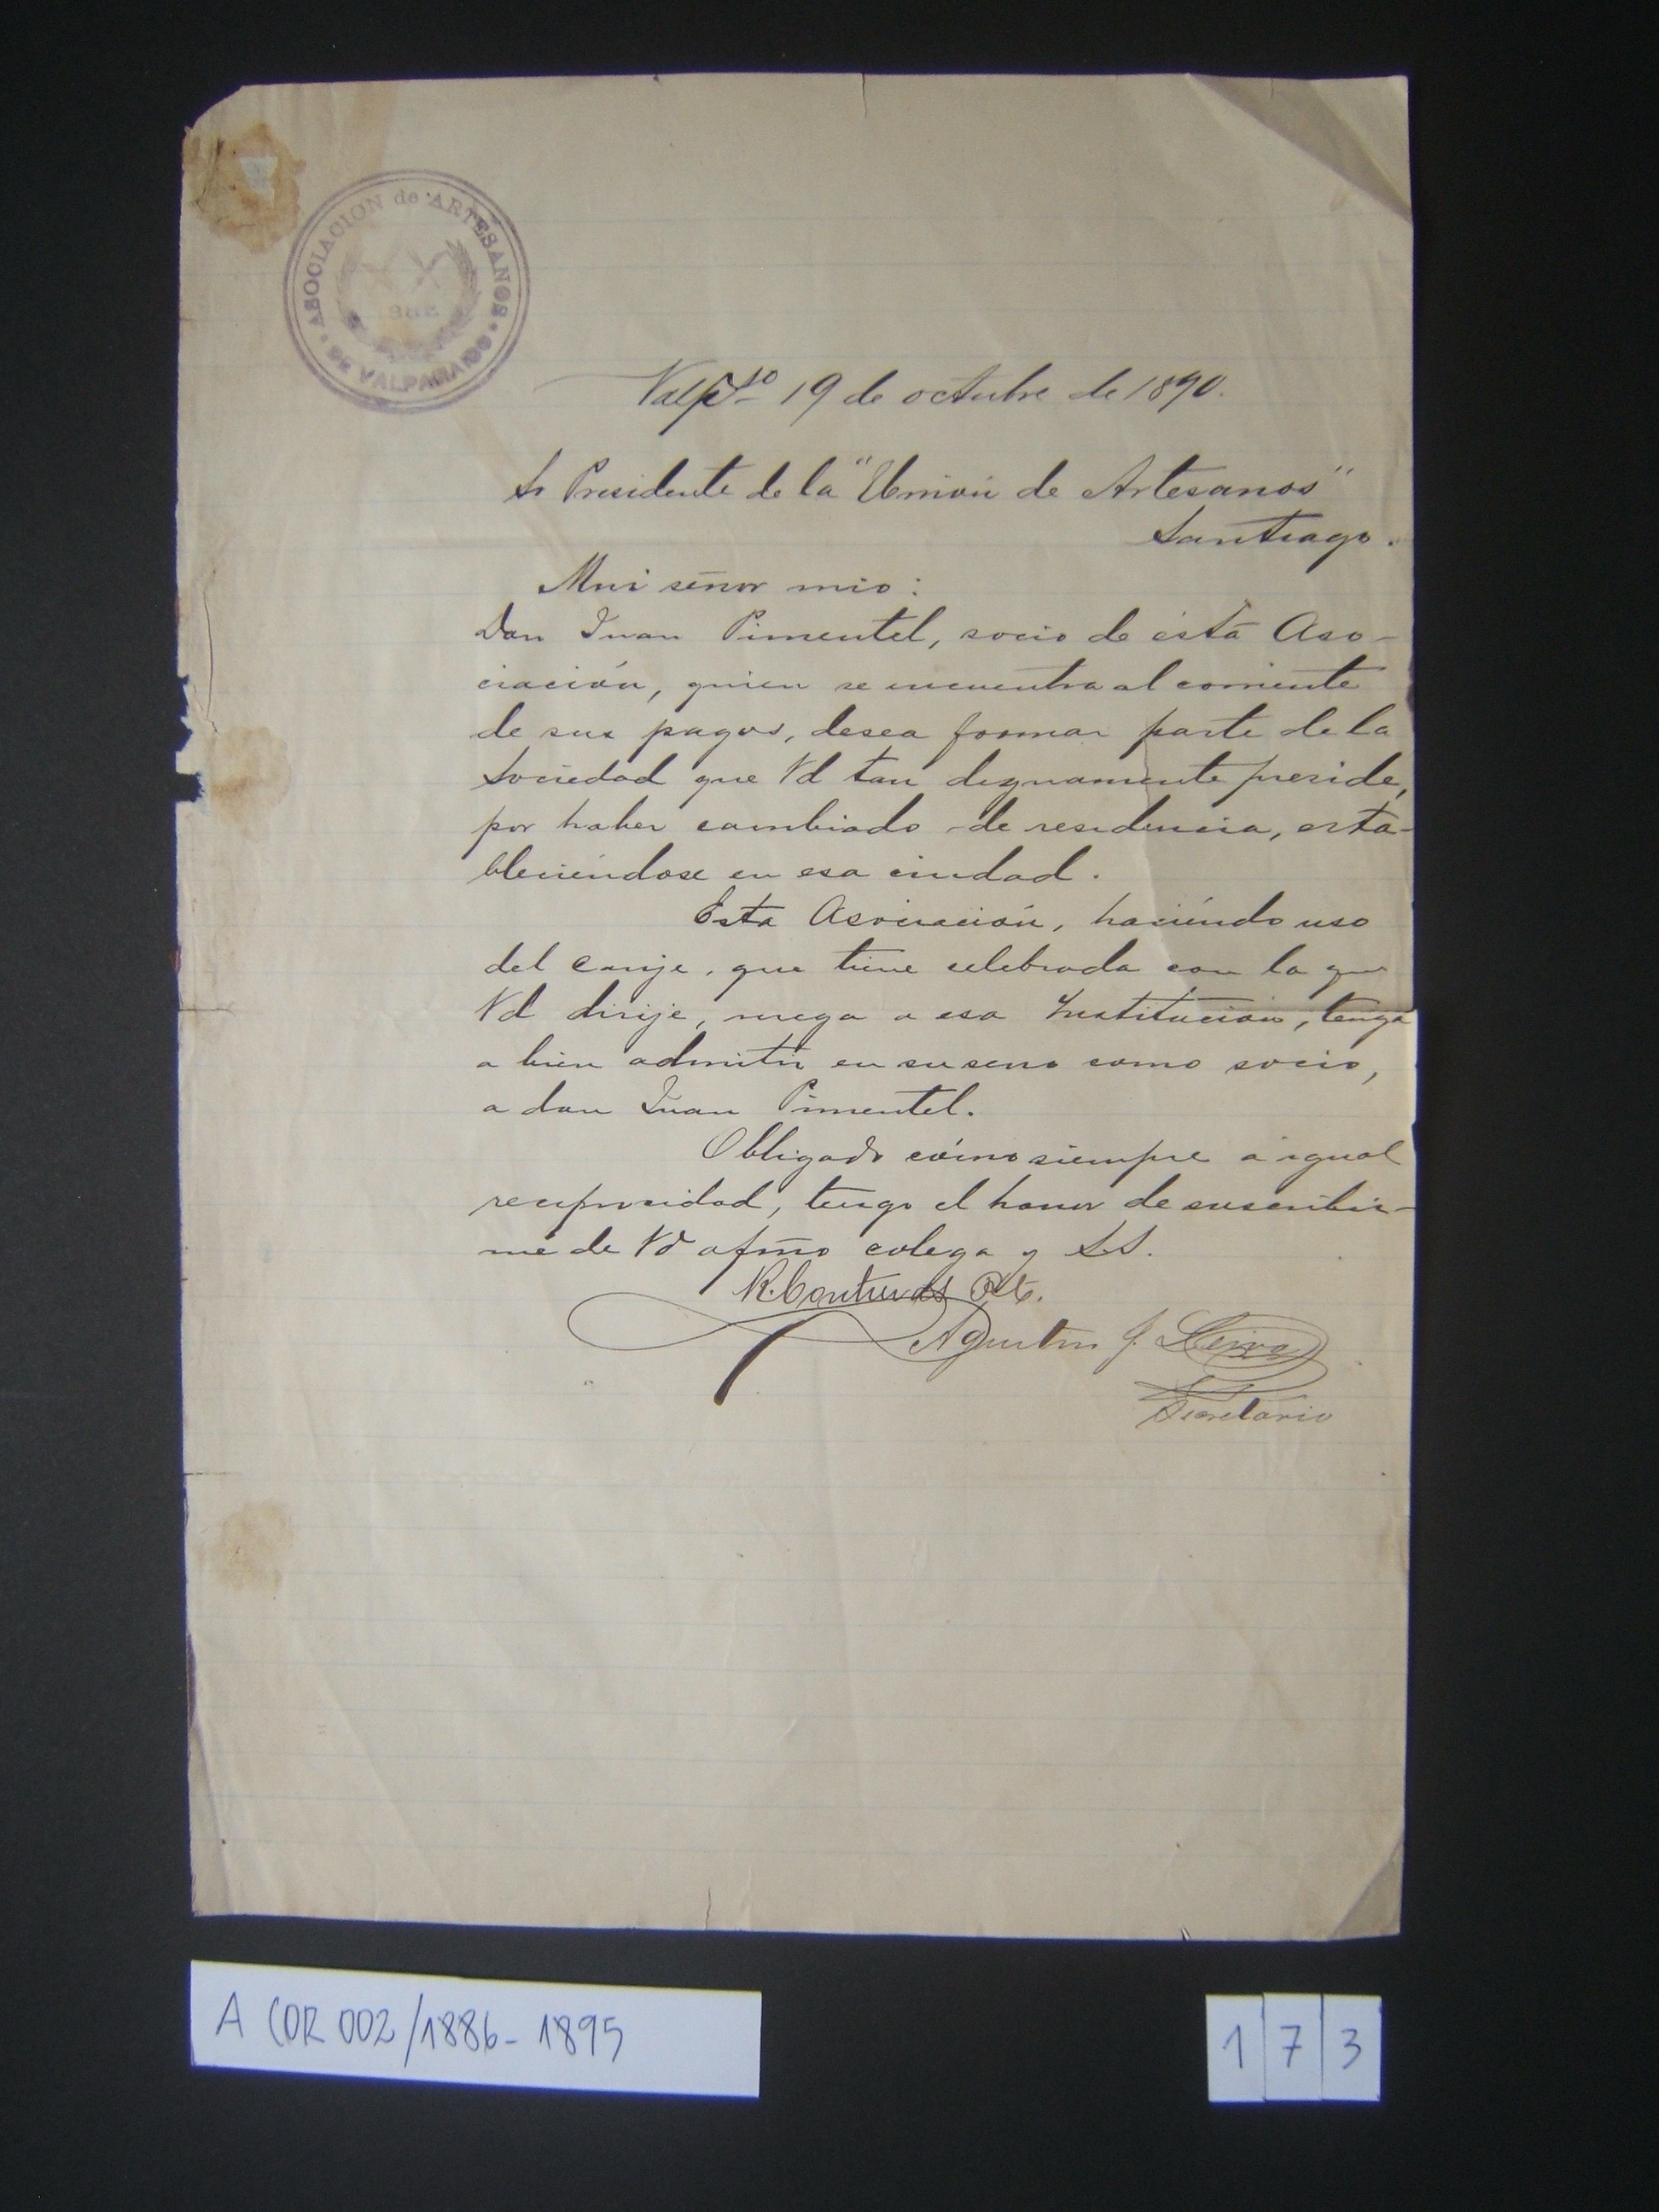 ASOCIACION de ARTESANOS
DE VALPARAISO
Valpso 19 de octubre de 1890.
Sr Presidente de la "Union de Artesanos"
Santiago.
Mui señor mio:
Don Juan Pimentel, socio de ésta Aso-
ciación, quien se encuentra al corriente
de sus pagos, desea formar parte de la
Sociedad que Vd tan dignamente preside,
por haber cambiado de residencia, esta-
bleciéndose en esa ciudad.
Esta Asociación, haciéndo uso
del canje, que tiene celebrada con la que
Vd dirije, ruega a esa Institución, tenga
a bien admitir en su seno como socio,
a don Juan Pimentel.
Obligado cómo siempre a igual
reciprocidad, tengo el honor de suscribir-
me de Vd afmo colega y SS.
R. Contreras Pte.
Agustin J. Leiva
Secretario
A COR 002/1886-1895
1 7 3